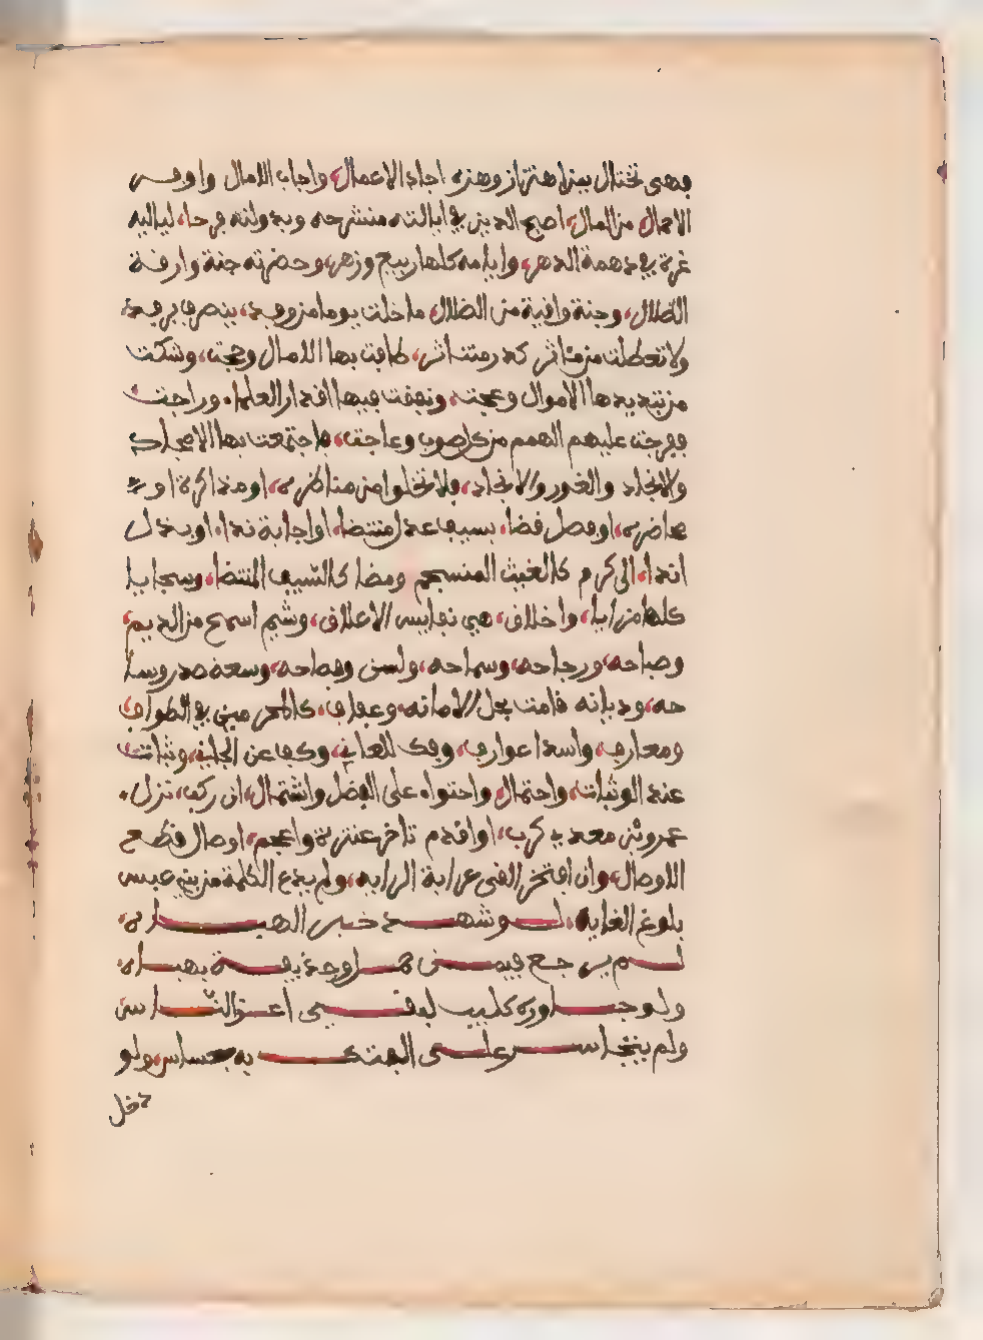 فهي تختال بين اهتزاز وهزه اجاد الاعمال، واجاب الامال واوفر
الاحمال من المال، اصبح الدين في ايالته منشرحه وبدولته فرحا، لياليه
غرة في دهمة الدهر، وايامه كلها ربيع وزهر، وحضرته جنة وارفة
الظلال، وجنة وافية من الضلال، ما خلت يوما من وفد، ينصرف برفد،
ولا تعطلت من مئاثر طافت بها الامال وحجت، وشكت
من تبديدها الاموال وعجت، ونفقت فيها اقدار العلماء وراجت
فعرجت عليهم الهمم من كل صوب وعاجت، فاجتمعت بها الامجاد
والانجاد والغور والانجاد، فلا تخلوا من مناظره، او مذاكرة او
محاضره، او فصل قضاء، بسيف عدل منتضا، او اجابة نداء، او بذل
انداء، الى كرم كالغيث المنسجم ومضا كالسيف المنتضا، وسجايا
كلها مزايا، واخلاق، هي نفايس الاعلاق، وشيم اسمح من الديم،
وصباحه، ورجاحه، وسماحه، ولسن وفصاحه، وسعة صدر وسا
حه، وديانه قامت بحمل الامانه، وعفاف، كالمحرمين في الطواف،
ومعارف، واسدا عوارف، وفك للعاني، وكف عن الجاني، وثبات
عند الوثبات، واحتمال، واحتواء على الفضل واشتمال، ان ركب، نزل،
عمرو بن معدي كرب، او اقدم تاخر عنترة واعجم، او صال قطع
الاوصال، وان افتخر الفتى عرابة الرايه، ولم يدع الكلمة من بني عبس
بلوغ الغايه، لو شهد خبر الهباه،
لم يرجع فيمن حمل وحذيفة بهباه،
ولو جاوره كليب لبقي اعز الناس
ولم يتجاسر على الفتك به جساس، ولو
دخل